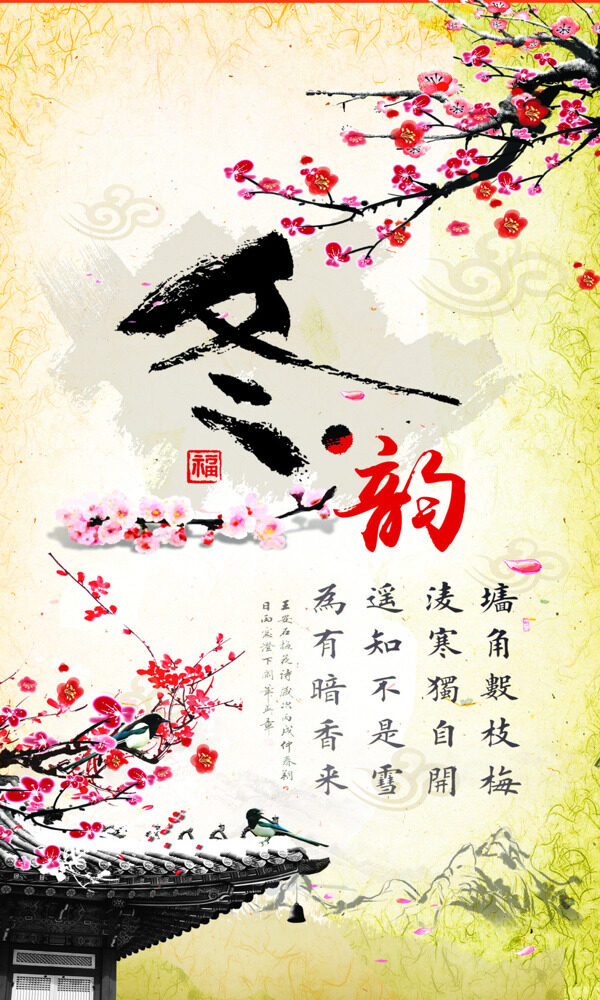 冬
韵
福
墻角數枝梅
淩寒獨自開
遥知不是雪
為有暗香来
王安石梅花诗歲次丙戌仲春朔